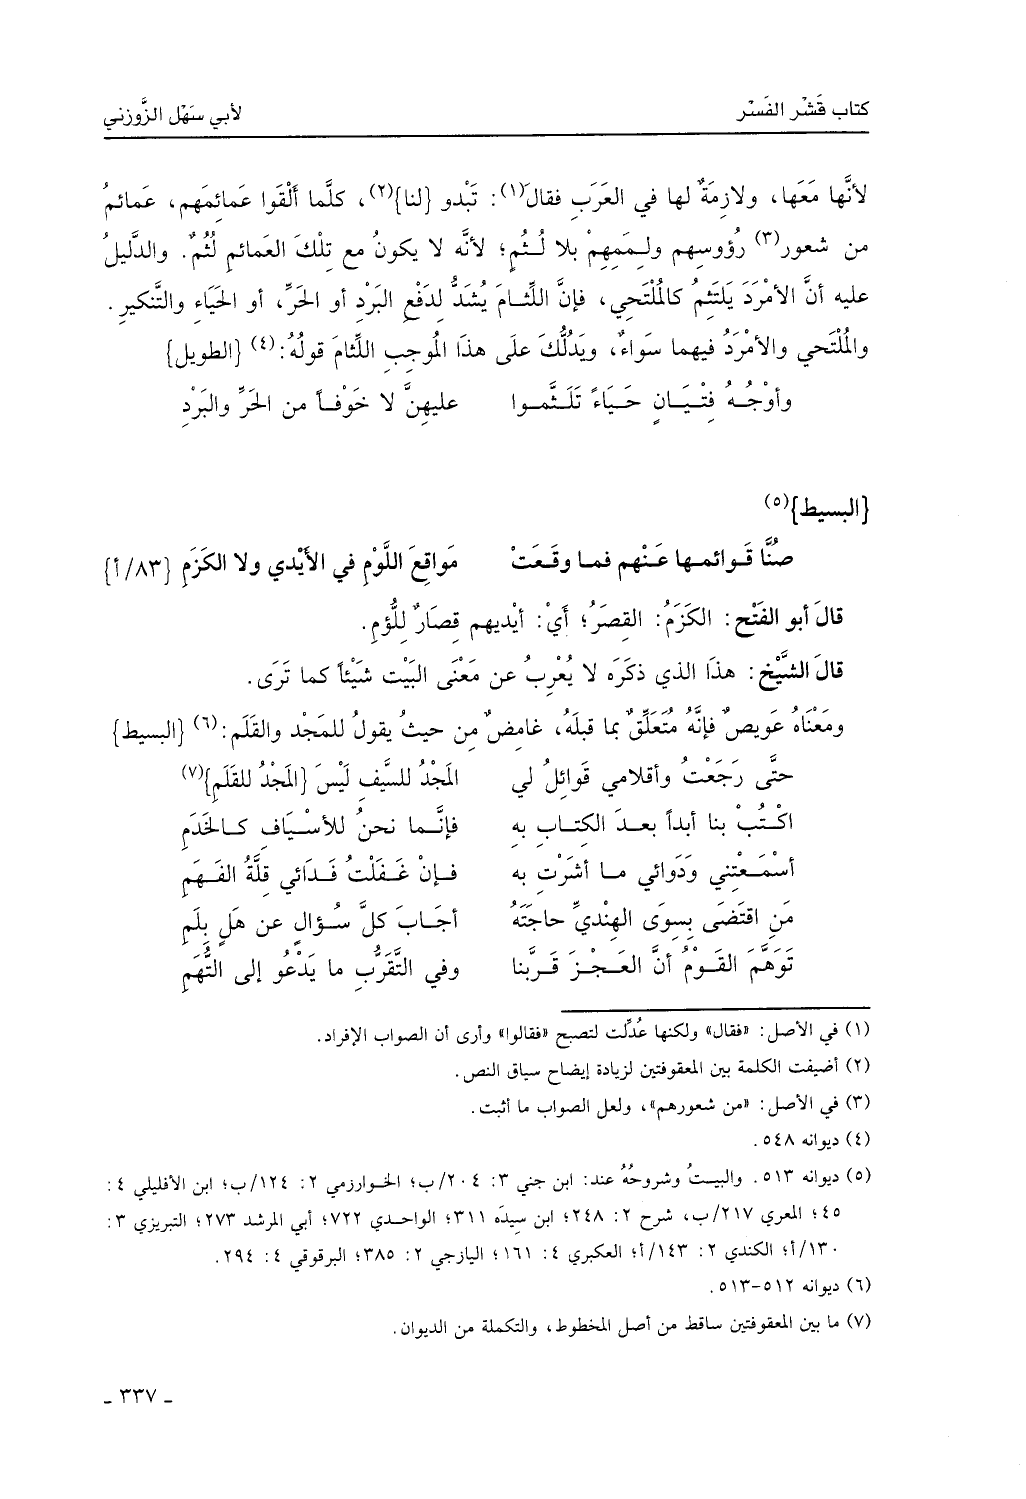 كتاب قَشْر الفَسْر لأبي سَهْل الزَّوزني
لأنَّها مَعَها، ولازِمَةٌ لها في العَرَبِ فقالَ(١): تَبْدو {لنا}(٢)، كلَّما ألْقَوا عَمائِمَهم، عَمائمُ
من شعور(٣) رُؤوسِهم ولِمَمِهِمْ بلا لُثُمٍ؛ لأنَّه لا يكونُ مع تِلْكَ العَمائمِ لُثُمٌ. والدَّليلُ
عليه أنَّ الأمْرَدَ يَلتَثِمُ كالمُلْتَحي، فإنَّ اللِّثامَ يُشَدُّ لِدَفْعِ البَرْدِ أو الحَرِّ، أو الحَيَاءِ والتَّنكيرِ.
والمُلْتَحي والأمْرَدُ فيهما سَواءٌ، ويَدُلُّكَ على هذا المُوجبِ اللِّثامَ قولُهُ:(٤) {الطويل}
وأوْجُهُ فِتْيَانٍ حَيَاءً تَلَثَّموا عليهِنَّ لا خَوْفاً من الحَرِّ والبَرْدِ
{البسيط}(٥)
صُنَّا قَوائمها عَنْهم فما وقَعَتْ مَواقِعَ اللَّوْمِ في الأيْدي ولا الكَزَمِ {٨٣/أ}
قالَ أبو الفَتْحِ: الكَزَمُ: القِصَرُ؛ أيْ: أيْديهم قِصَارٌ لِلُّؤمِ.
قالَ الشَّيْخ: هذا الذي ذكَرَه لا يُعْرِبُ عن مَعْنَى البَيْت شَيْئاً كما تَرَى.
ومَعْنَاهُ عَويصٌ فإنَّهُ مُتَعَلِّقٌ بما قبلَهُ، غامِضٌ مِن حيثُ يقولُ للمَجْد والقَلَمِ:(٦) {البسيط}
حتَّى رَجَعْتُ وأقلامي قَوائلُ لي المَجْدُ للسَّيفِ لَيْسَ {المَجْدُ للقَلَمِ}(٧)
اكْتُبْ بنا أبداً بعدَ الكتابِ بِه فإنَّما نحنُ للأسْيَافِ كالخَدَمِ
أسْمَعْتِني ودَوَائي ما أشَرْتِ به فإنْ غَفَلْتُ فَدَائي قِلَّةُ الفَهَمِ
مَنِ اقتَضَى بِسِوَى الهِنْديِّ حاجَتَهُ أجَابَ كلَّ سُؤالٍ عن هَلٍ بِلَمِ
تَوَهَّمَ القَوْمُ أنَّ العَجْزَ قَرَّبنا وفي التَّقَرُّبِ ما يَدْعُو إلى التُّهَمِ
(١) في الأصل: «فقال» ولكنها عُدِّلت لتصبح «فقالوا» وأرى أن الصواب الإفراد.
(٢) أضيفت الكلمة بين المعقوفتين لزيادة إيضاح سياق النص.
(٣) في الأصل: «من شعورهم»، ولعل الصواب ما أثبت.
(٤) ديوانه ٥٤٨.
(٥) ديوانه ٥١٣. والبيتُ وشروحُهُ عند: ابن جني ٣: ٢٠٤/ب؛ الخوارزمي ٢: ١٢٤/ب؛ ابن الأفليلي ٤:
٤٥؛ المعري ٢١٧/ب، شرح ٢: ٢٤٨؛ ابن سيدَه ٣١١؛ الواحدي ٧٢٢؛ أبي المرشد ٢٧٣؛ التبريزي ٣:
١٣٠/أ؛ الكندي ٢: ١٤٣/أ؛ العكبري ٤: ١٦١؛ اليازجي ٢: ٣٨٥؛ البرقوقي ٤: ٢٩٤.
(٦) ديوانه ٥١٢-٥١٣.
(٧) ما بين المعقوفتين ساقط من أصل المخطوط، والتكملة من الديوان.
- ٣٣٧ -